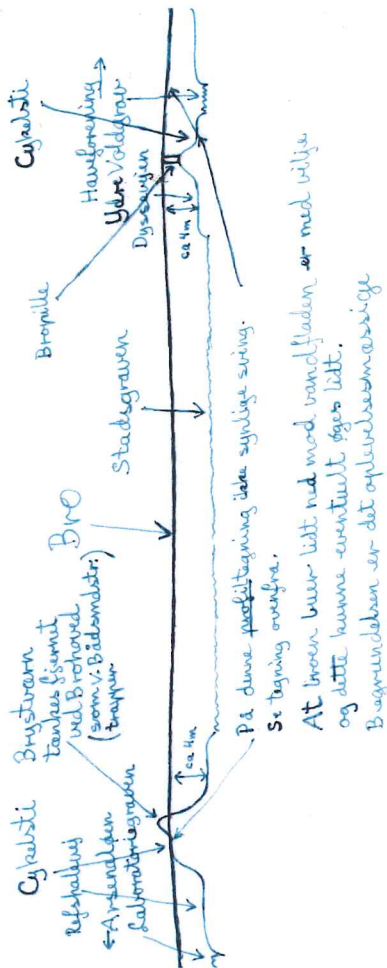 Cykelsti
Refshalevej
←Arsenaløen
Laboratoriegraven
Brystværn
tænkes fjernet
ved Brohoved
(som v. Bådsmdstr.)
trappen
ca 4m
Bro
Stadsgraven
Bropille
Cykelsti
Haveforening→
Ydre Voldgrav
Dyssevejen
ca 4m
På denne profiltegning ikke synlige sving.
Se tegning ovenfra.
At broen buer lidt ned mod vandfladen er med vilje
og dette kunne eventuelt øges lidt.
Begrundelsen er det oplevelsesmæssige